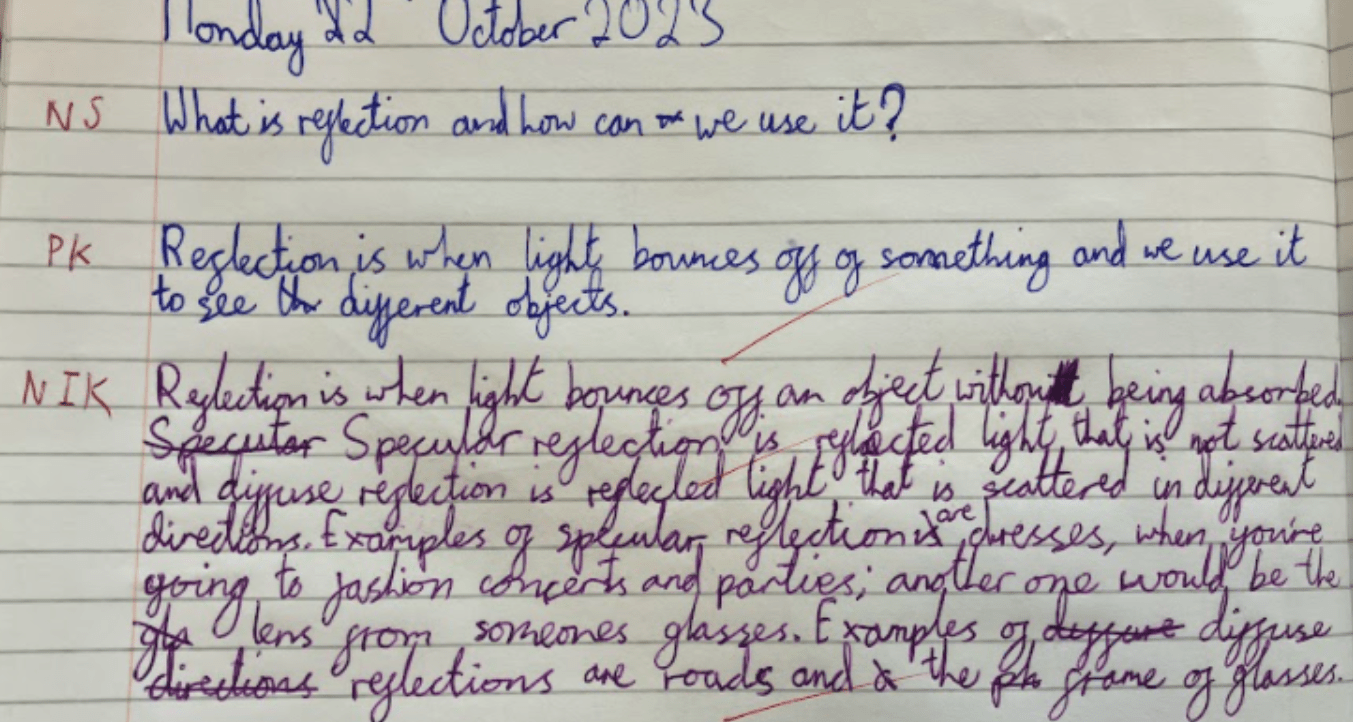 Monday 22 October 2023
NS What is reflection and how can we use it?
PK Reflection is when light bounces off of something and we use it
to see different objects.
NIK Reflection is when light bounces off an object without being absorbed.
Specular Specular reflection is reflected light that is not scattered
and diffuse reflection is reflected light that is scattered in different
directions. Examples of specular reflection are dresses, when you're
going to fashion concerts and parties; another one would be the
gla lens from someones glasses. Examples of diffuse diffuse
directions reflections are roads and the frame of glasses.